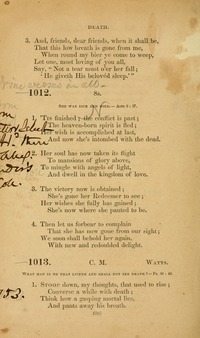 DEATH.
3. And, friends, dear friends, when it shall be,
That this low breath is gone from me,
When round my bier ye come to weep,
Let one, most loving of you all,
Say, "Not a tear must o'er her fall;
'He giveth His belovèd sleep.'"
1012. 8s.
SHE WAS SICK AND DIED.— Acts 9 : 37.
'Tis finished; the conflict is past;
The heaven-born spirit is fled;
Her wish is accomplished at last,
And now she's intombed with the dead.
2. Her soul has now taken its flight
To mansions of glory above,
To mingle with angels of light,
And dwell in the kingdom of love.
3. The victory now is obtained;
She's gone her Redeemer to see;
Her wishes she fully has gained;
She's now where she panted to be.
4. Then let us forbear to complain
That she has now gone from our sight;
We soon shall behold her again,
With new and redoubled delight.
1013. C. M. WATTS.
WHAT MAN IS HE THAT LIVETH AND SHALL NOT SEE DEATH?—Ps. 89 : 48.
1. STOOP down, my thoughts, that used to rise;
Converse a while with death;
Think how a gasping mortal lies,
And pants away his breath.